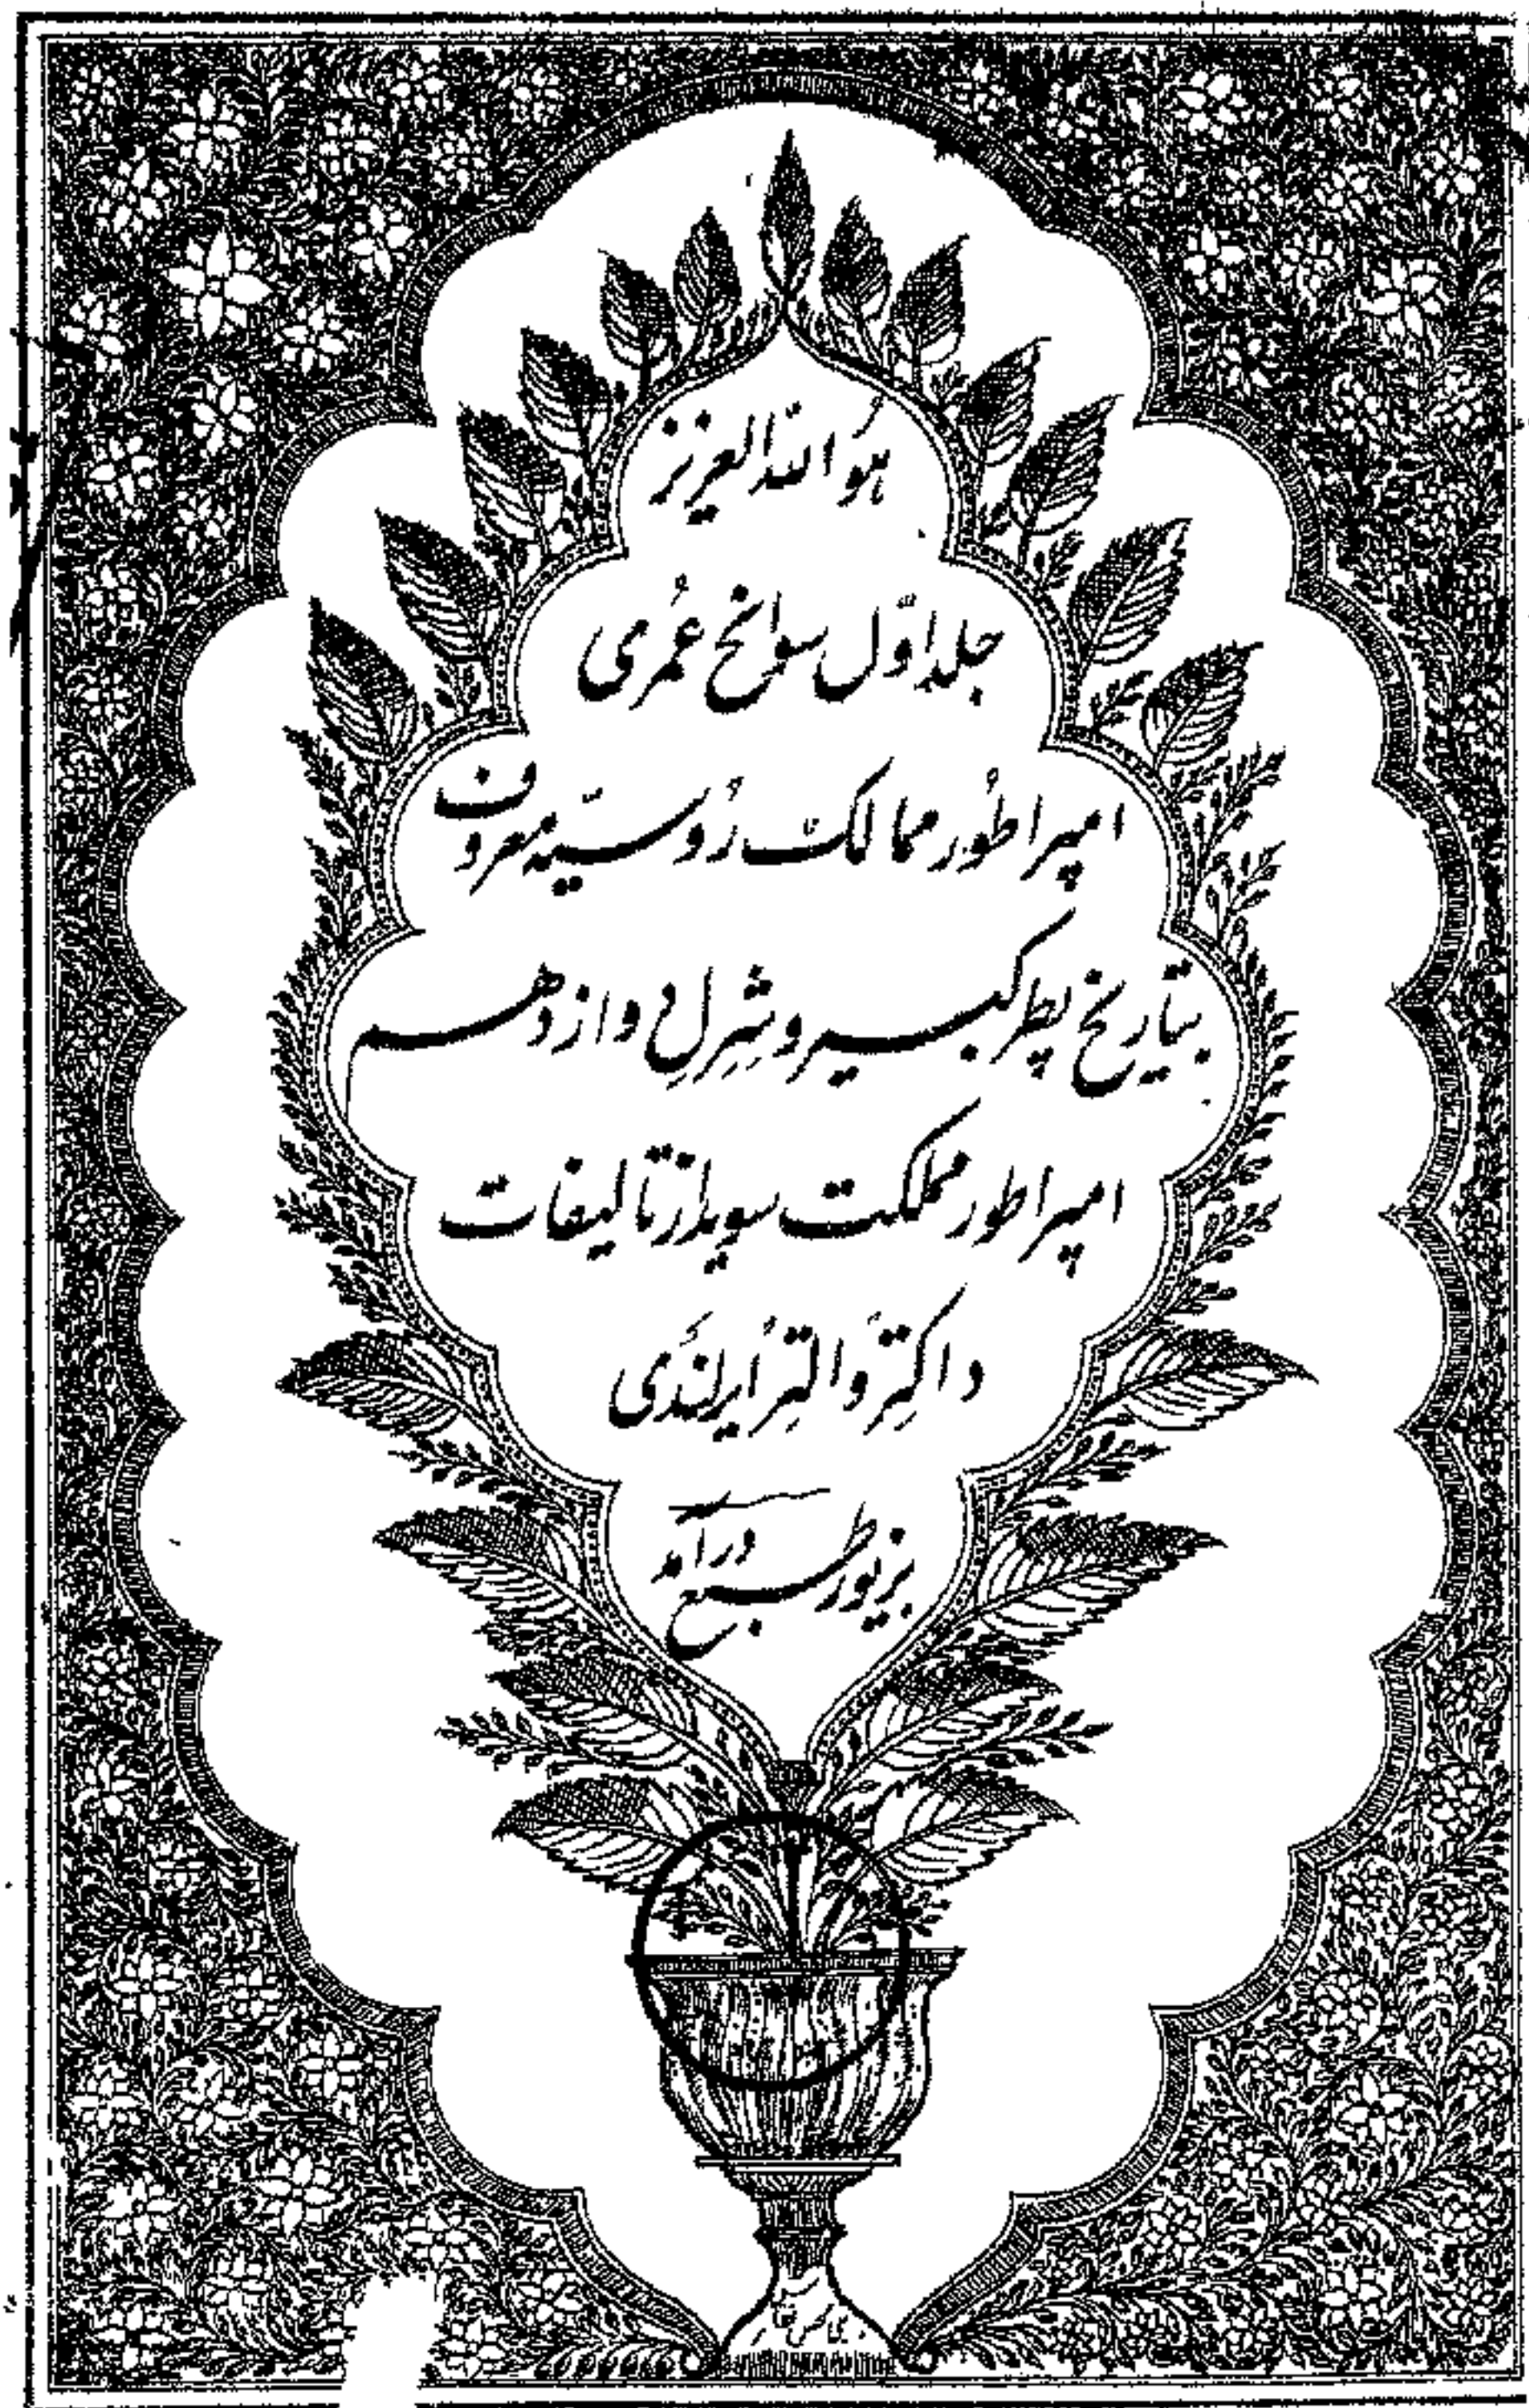 هُو اللّه العزیز
جلد اوّل سوانح عُمری
امپراطُور ممالک رُوسیّه معروف
بتاریخ پطر کبیر و شِرلِ دوازدهم
امپراطور مملکت سوید از تالیفات
داکتِر وُالتِر ایرلنَدی
بزیور طبع درآمد